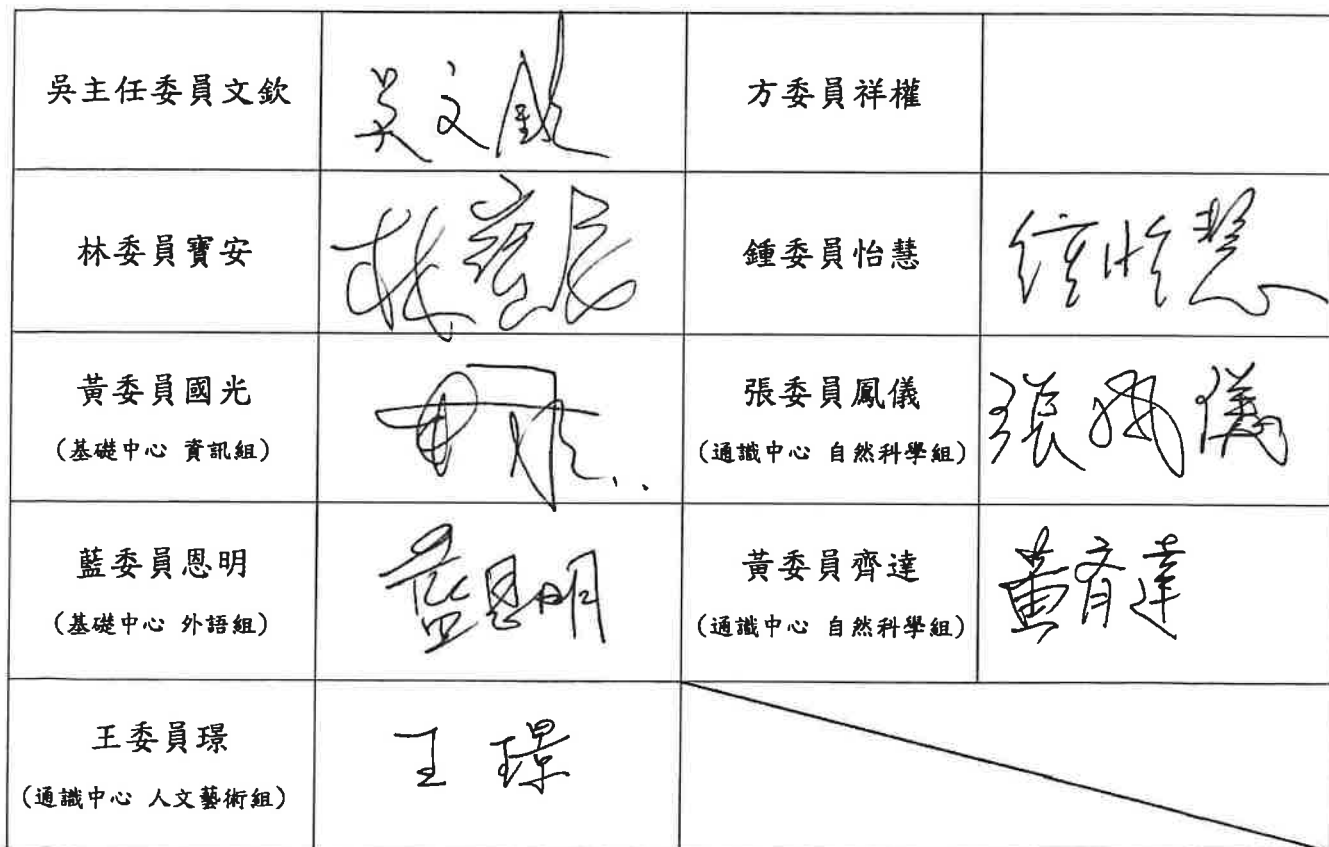 吳主任委員文欽
吳文欽
方委員祥權
林委員寶安
鍾委員怡慧
黃委員國光
(基礎中心 資訊組)
張委員鳳儀
(通識中心 自然科學組)
張鳳儀
藍委員恩明
(基礎中心 外語組)
藍恩明
黃委員齊達
(通識中心 自然科學組)
黃齊達
王委員璟
(通識中心 人文藝術組)
王璟